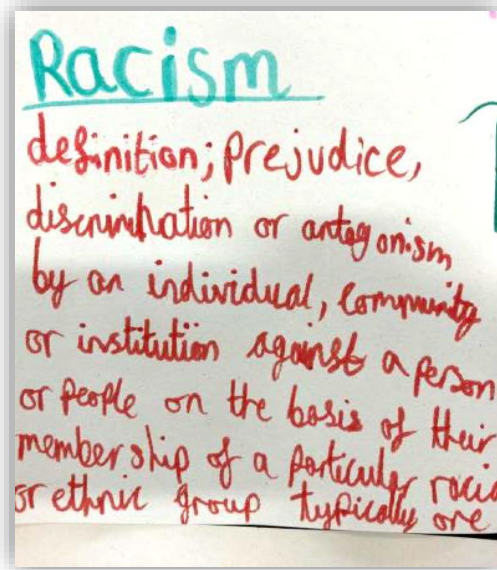 Racism
definition; prejudice,
discrimination or antagonism
by an individual, community
or institution against a person
or people on the basis of their
membership of a particular racia
or ethnic group typically one